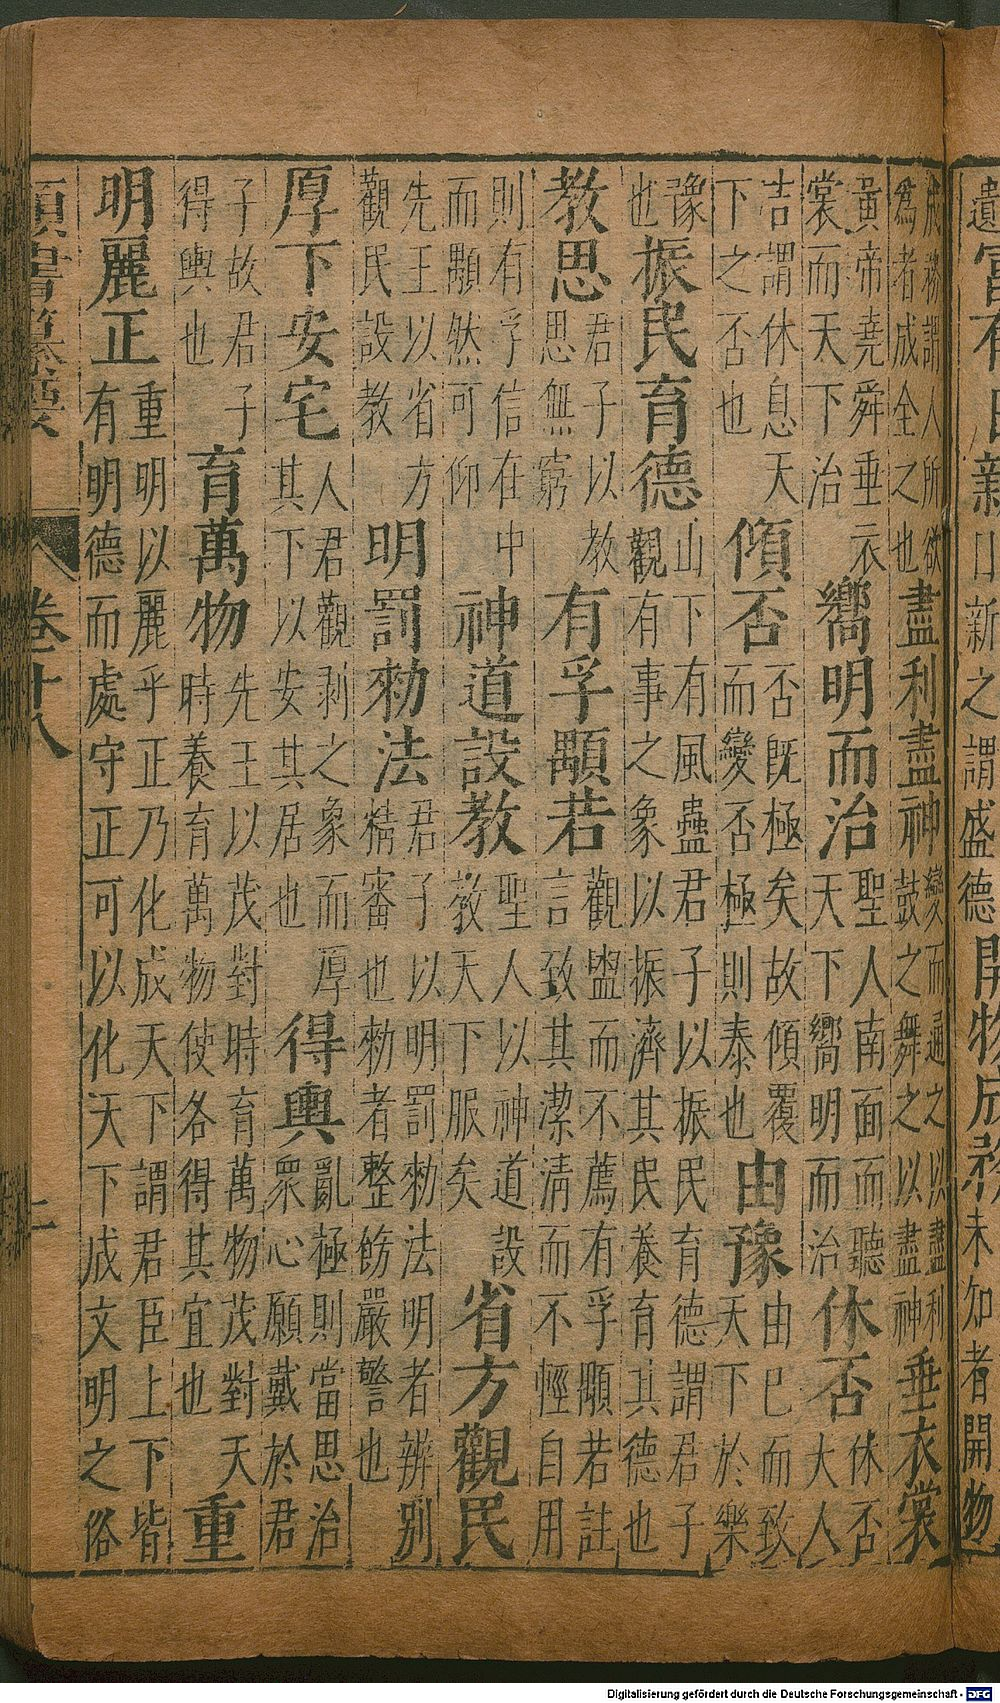 遺富有日新日新之謂盛德開物成務未知者開物
成務謂人所欲爲者成全之也盡利盡神變而通之以盡利鼓之舞之以盡神垂衣裳
黃帝堯舜垂衣裳而天下治嚮明而治聖人南面而聽天下嚮明而治休否休否大人
吉謂休息天下之否也傾否否既極矣故傾覆而變否極則泰也由豫由巳而致天下於樂
豫也振民育德山下有風蠱君子以振民育德謂君子觀有事之象以振濟其民養育其德也
教思君子以教思無窮有孚顒若觀盥而不薦有孚顒若註言致其潔淸而不輕自用
則有孚信在中而顒然可仰神道設教聖人以神道設教天下服矣省方觀民
先王以省方觀民設教明罰勑法君子以明罰勑法明者辨別精審也勑者整飭嚴警也
厚下安宅人君觀剥之象而厚其下以安其居也得輿亂極則當思治衆心願戴於君
子故君子得輿也育萬物先王以茂對時育萬物茂對天時養育萬物使各得其宜也重
明麗正重明以麗乎正乃化成天下謂君臣上下皆有明德而處守正可以化天下成文明之俗
類書纂要 卷十八
Digitalisierung gefördert durch die Deutsche Forschungsgemeinschaft - DFG